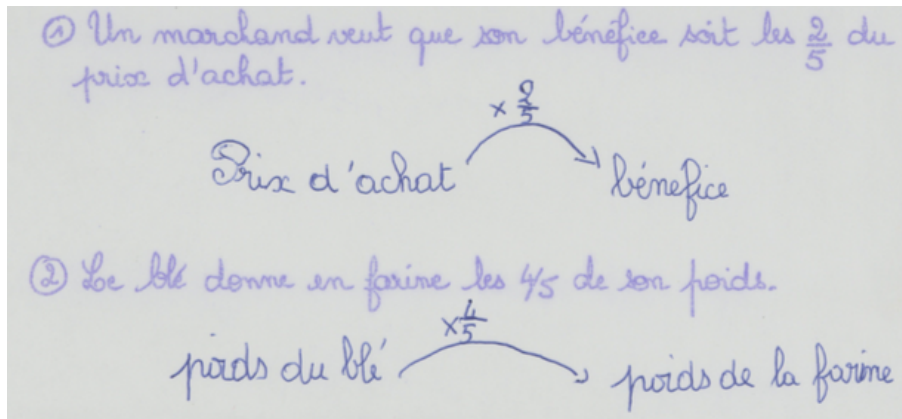 ① Un marchand veut que son bénéfice soit les 2/5 du
prix d'achat.
× 2/5
Prix d'achat bénéfice
② Le blé donne en farine les 4/5 de son poids.
× 4/5
poids du blé poids de la farine